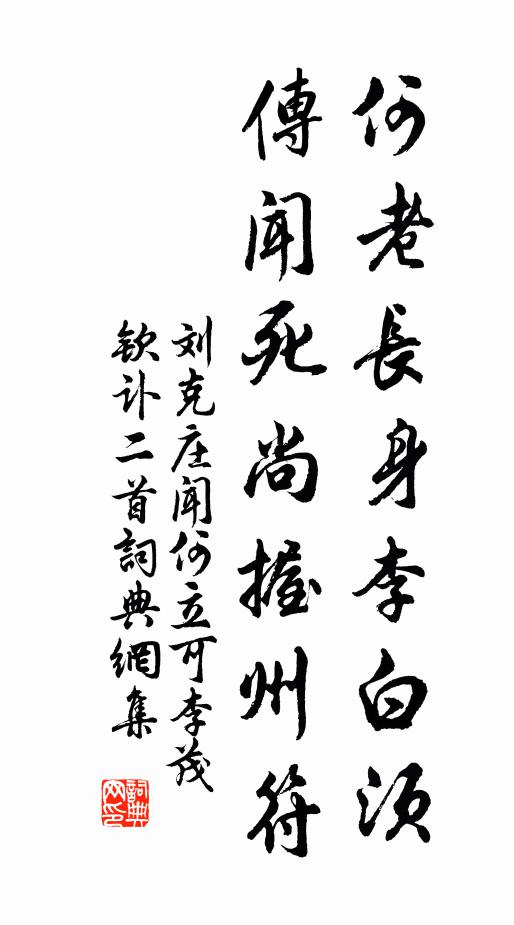 何老長身李白須
傳聞死尚握州符
刘克庄闻何立可李茂
欽讣二首詞典網集
詞典网印